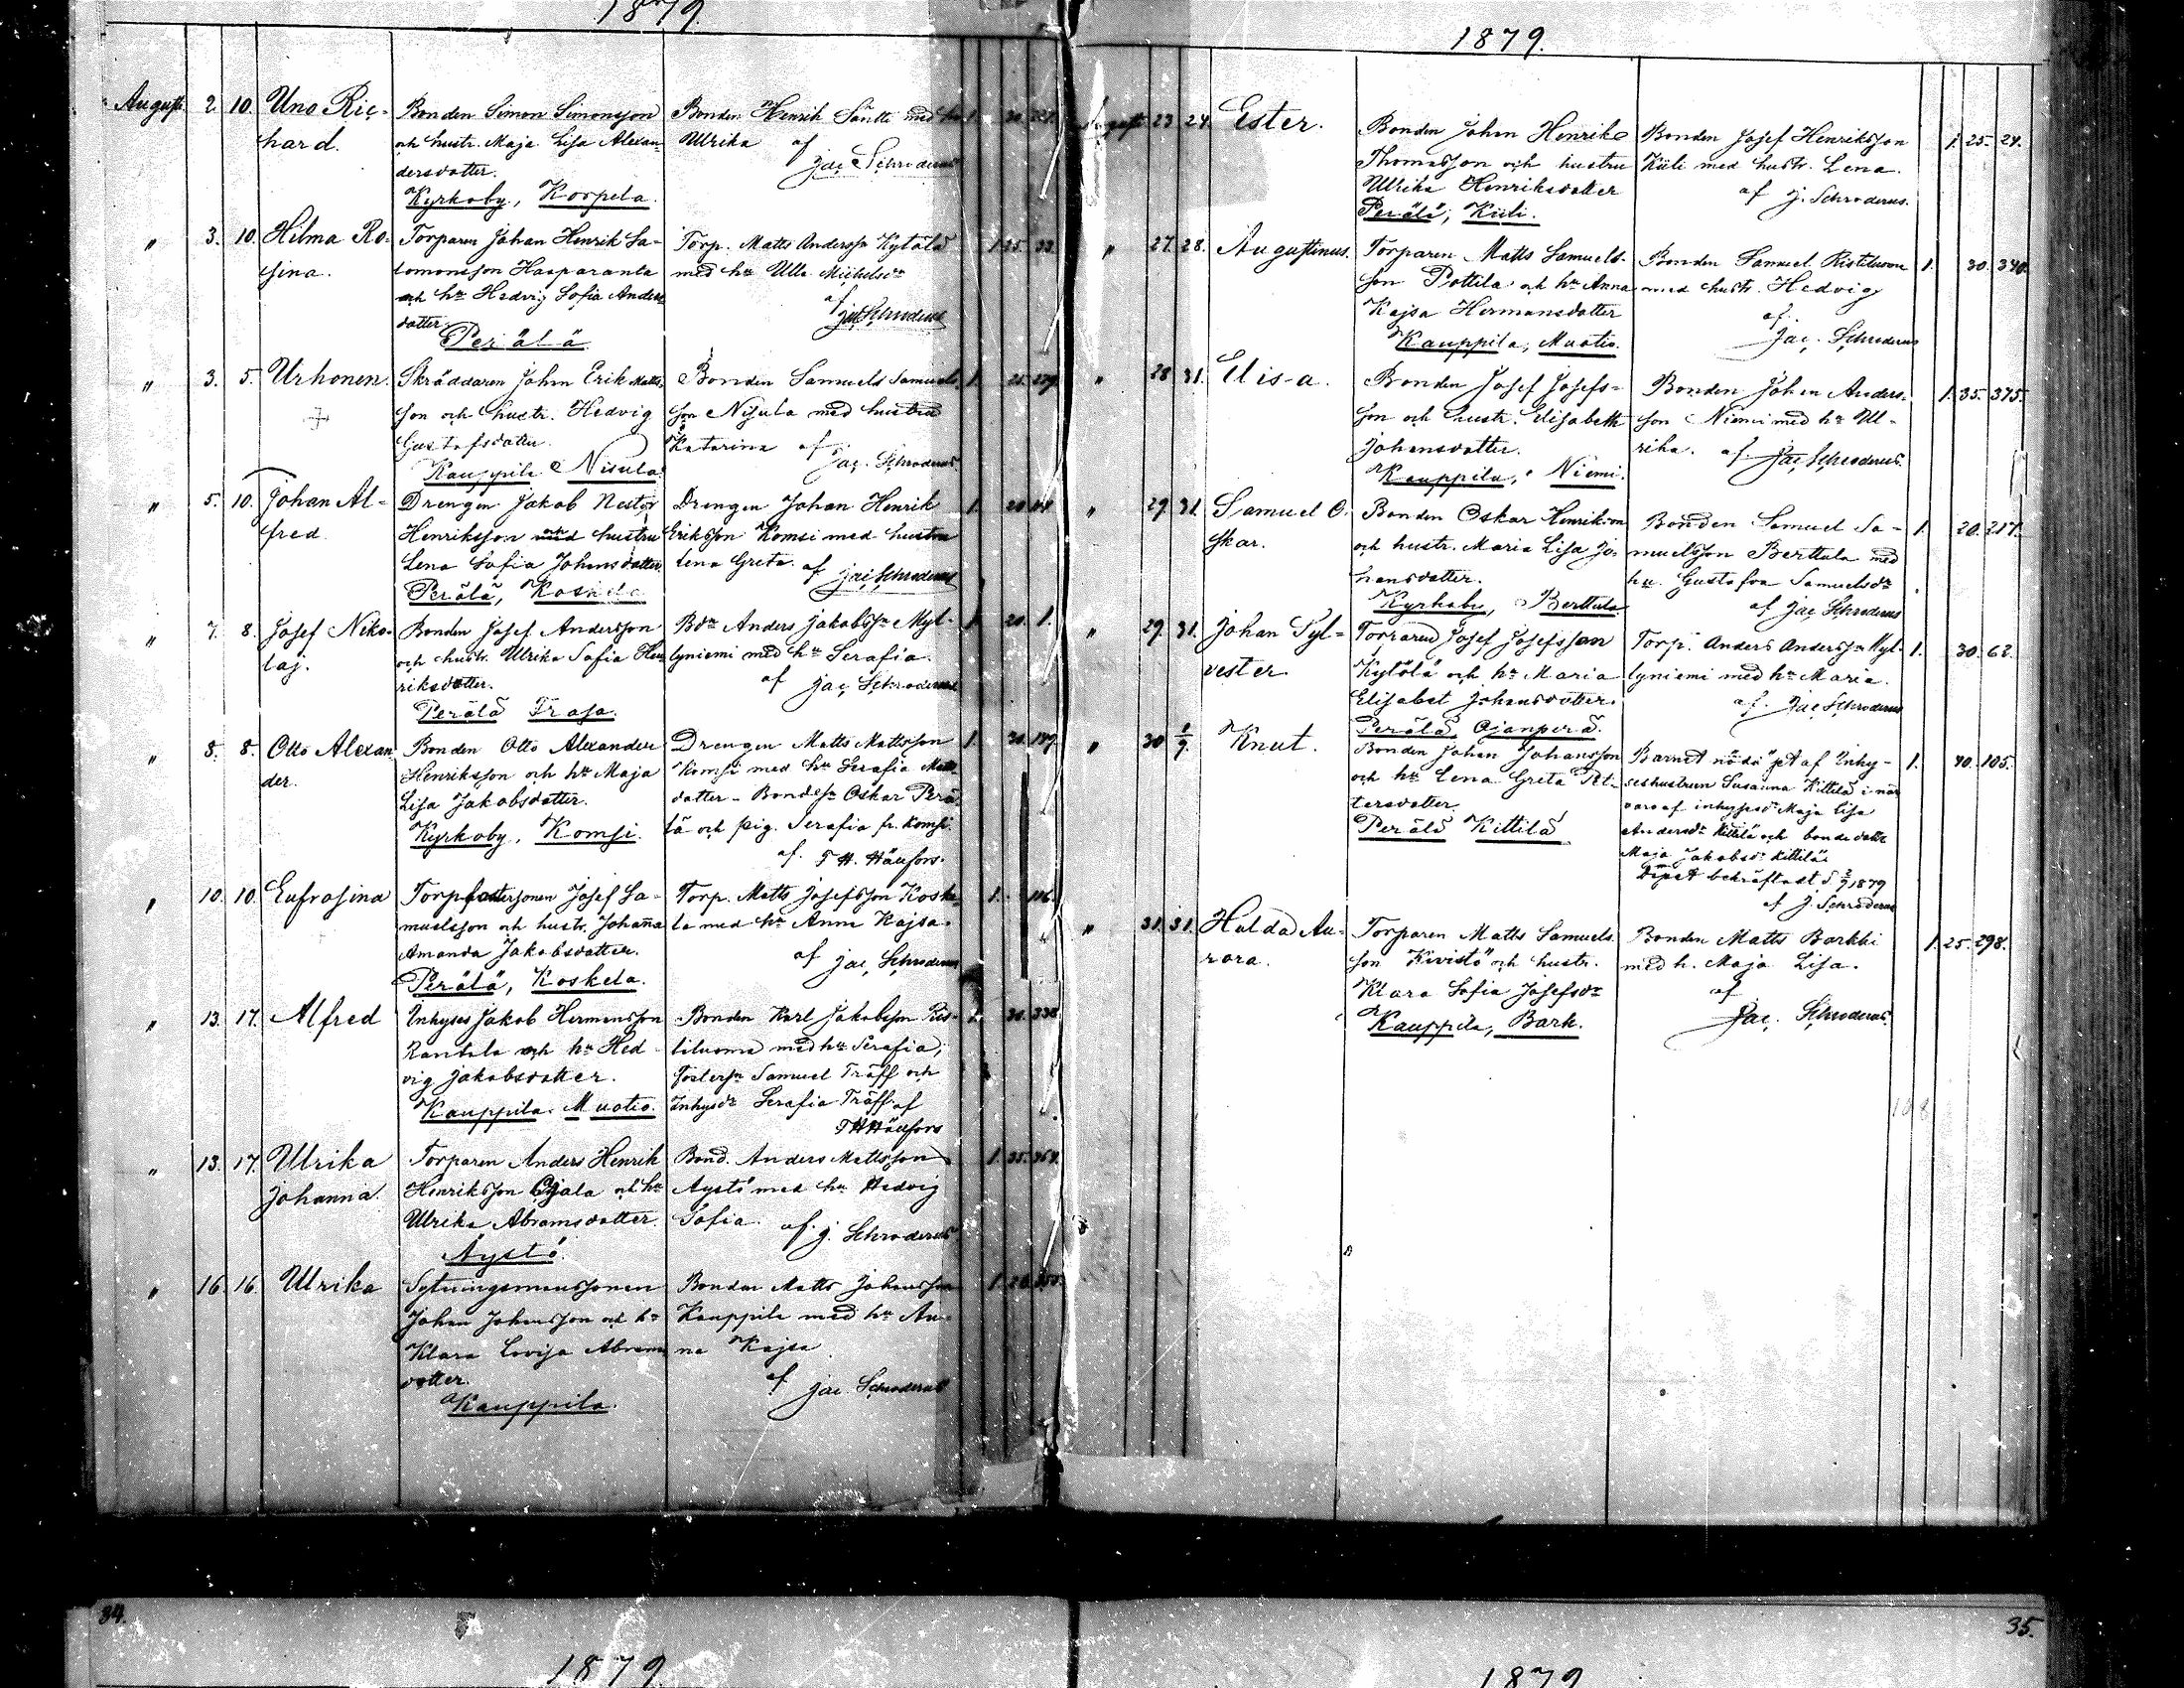 1879.
August 2. 10. Uno Ric- Bonden Simon Simonsson Bonden Henrik Säntti med hu 1. 30.
hard. och hustr. Maja Lisa Alexan- Ulrika af
dersdotter. Jac Schroderus
Kyrkoby, Korpela.
" 3. 10. Hilma Ro- Torparen Johan Henrik Sa- Torp. Matts Anderssn Kytölä 1. 25. 33.
sina. lomonsson Haaparanta med hu Ulla Michelsdr
och hu Hedvig Sofia Anders- af
dotter. Jac Schroderus
Perälä
" 3. 5. Urhonen. Skräddaren Johan Erik Matts- Bonden Samuels Samuels- 1. 25.
son och hustr. Hedvig son Nisula med hustru
Gustafsdotter. Katarina af
Kauppila Nisula. Jac. Schroderus.
" 5. 10. Johan Al- Drengen Jakob Nestor Drengen Johan Henrik 1. 20.
fred. Henriksson och hustru Eriksson Komsi med hustru
Lena Sofia Johansdotter. Lena Greta. af Jac Schroderus
Perälä, Koskela
" 7. 8. Josef Niko- Bonden Josef Andersson Bdn Anders Jakobssn Myl- 1. 20. 1.
laj. och hustr. Ulrika Sofia Hen- lyniemi med hu Serafia.
riksdotter. af Jac Schroderus
Perälä Fraja.
" 8. 8. Otto Alexan- Bonden Otto Alexander Drengen Matts Mattsson 1. 30.
der. Henriksson och hu Maja Komsi med hu Serafia Matts-
Lisa Jakobsdotter. dotter - Bondesn Oskar Perä-
Kyrkoby, Komsi. lä och pig. Serafia fr. Komsi.
af. F. H. Häufors.
" 10. 10. Eufrosina Torpfostersonen Josef Sa- Torp. Matts Josefsson Koske- 1. 116.
muelsson och hustr. Johanna la med hu Anna Kajsa.
Amanda Jakobsdotter. af Jac. Schroderus
Perälä, Koskela.
" 13. 17. Alfred Inhyses Jakob Hermansson Bonden Karl Jakobsson Ris- 1. 30. 338
Rantala och hu Hed- tiluoma med hu Serafia,
vig Jakobsdotter. Fostersn Samuel Träff och
Kauppila. Muotio. Inhysdr Serafia Träff. af
F H Häufors
" 13. 17. Ulrika Torparen Anders Henrik Bond. Anders Mattsson 1. 35.
Johanna. Henriksson Ojala och hu Äystö med hu Hedvig
Ulrika Abramsdotter. Sofia. af. J. Schroderus
Äystö.
" 16. 16. Ulrika Sytningsmanssonen Bonden Matts Johansson 1.
Johan Johansson och hu Kauppila med hu An-
Klara Lovisa Abrams- na Kajsa
dotter. af Jac Schroderus
Kauppila.
1879.
August 23 24. Ester. Bonden Johan Henrik Bonden Josef Henriksson 1. 25. 24.
Thomasson och hustru Küti med hustr. Lena.
Ulrika Henriksdotter af J. Schroderus.
Perälä, Küti.
" 27. 28. Augustinus. Torparen Matts Samuels- Bonden Samuel Ristiluoma 1. 30. 340.
son Pottila och hu Anna med hustr. Hedvig
Kajsa Hermansdotter af.
Kauppila, Muotio. Jac. Schroderus
" 28 31. Elisa. Bonden Josef Josefs- Bonden Johan Anders- 1. 35. 375.
son och hustr. Elisabeth son Niemi med hu Ul-
Johansdotter. rika. af Jac Schroderus.
Kauppila, Niemi.
" 29. 31. Samuel O- Bonden Oskar Henriksson Bonden Samuel Sa- 1. 20. 217.
skar. och hustr. Maria Lisa Jo- muelsson Berttula med
hansdotter. hu. Gustafva Samuelsdr
Kyrkoby, Berttula. af Jac Schroderus
" 29. 31. Johan Syl- Torparen Josef Josefsson Torp. Anders Anderssn Myl- 1. 30. 62.
vester Kytölä och hu Maria lyniemi med hu Maria.
Elisabet Johansdotter. af. Jac Schroderus
Perälä, Ojanperä.
" 30 1/9. Knut. Bonden Johan Johansson Barnet nöddöpt af Inhy- 1. 40. 105.
och hu Lena Greta Pet- seshustrun Susanna Kittilä i när
tersdotter. varo af inhysesdr Maja Lisa
Perälä Kittilä Andersdr Kittilä och bondedottr
Maja Jakobsdr Kittilä.
Döpet bekräftadt d. 2/9 1879
af J. Schroderus
" 31. 31. Hulda Au- Torparen Matts Samuels- Bonden Matts Barkki 1. 25. 298.
rora. son Kivistö och hustr. med h. Maja Lisa.
Klara Sofia Josefsdr af
Kauppila, Bark. Jac. Schroderus.
108
34. 35.
1879. 1879